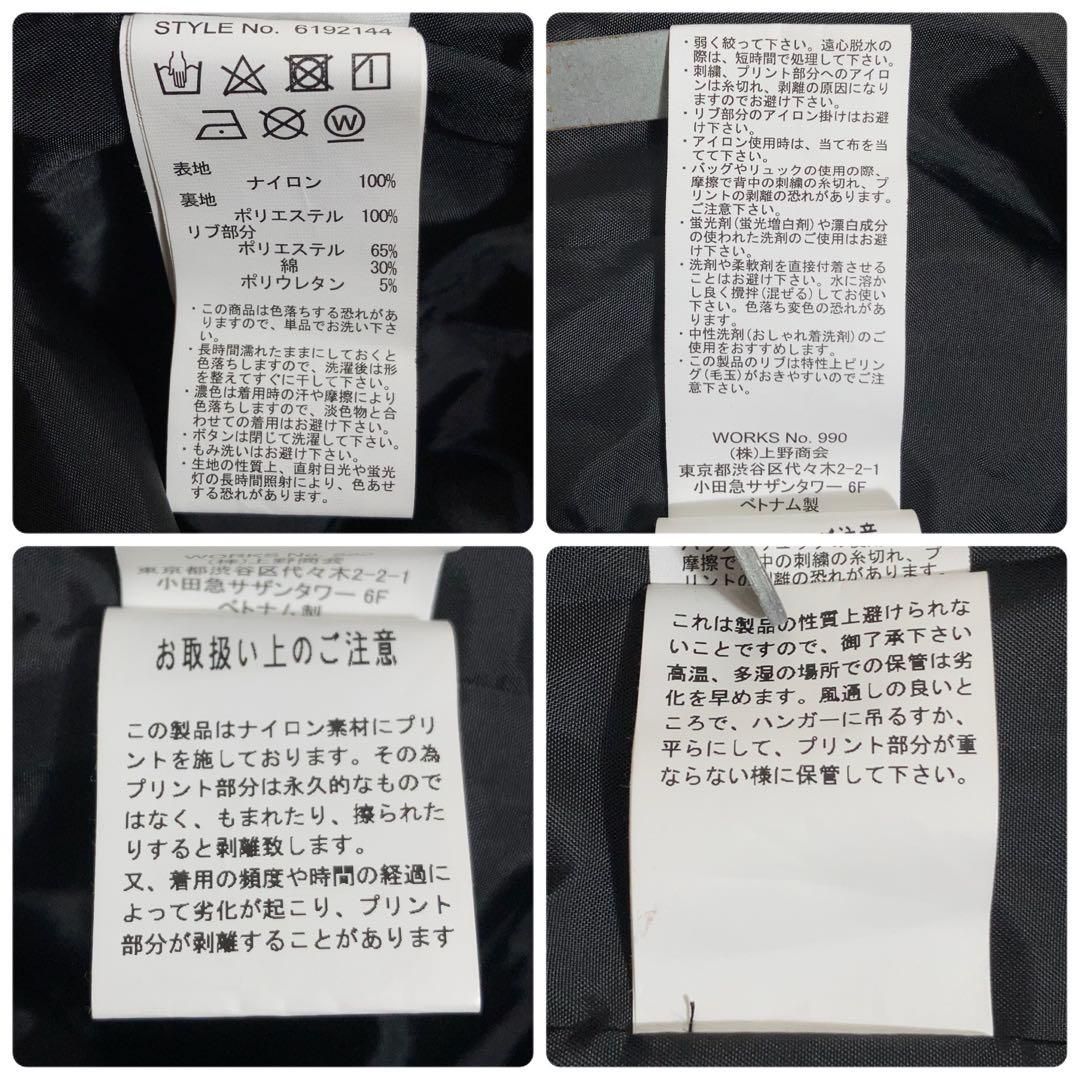 STYLE No. 6192144
W
表地
ナイロン 100%
裏地
ポリエステル 100%
リブ部分
ポリエステル 65%
綿 30%
ポリウレタン 5%
・この商品は色落ちする恐れがあ
りますので、単品でお洗い下さ
い。
・長時間濡れたままにしておくと
色落ちしますので、洗濯後は形
を整えてすぐに干して下さい。
・濃色は着用時の汗や摩擦により
色落ちしますので、淡色物と合
わせての着用はお避け下さい。
・ボタンは閉じて洗濯して下さい。
・もみ洗いはお避け下さい。
・生地の性質上、直射日光や蛍光
灯の長時間照射により、色あせ
する恐れがあります。
・弱く絞って下さい。遠心脱水の
際は、短時間で処理して下さい。
・刺繍、プリント部分へのアイロ
ンは糸切れ、剥離の原因になり
ますのでお避け下さい。
・リブ部分のアイロン掛けはお避
け下さい。
・アイロン使用時は、当て布を当
てて下さい。
・バッグやリュックの使用の際、
摩擦で背中の刺繍の糸切れ、プ
リントの剥離の恐れがあります。
ご注意下さい。
・蛍光剤(蛍光増白剤)や漂白成分
の使われた洗剤のご使用はお避
け下さい。
・洗剤や柔軟剤を直接付着させる
ことはお避け下さい。水に溶か
し良く攪拌(混ぜる)してお使い
下さい。色落ち変色の恐れがあ
ります。
・中性洗剤(おしゃれ着洗剤)のご
使用をおすすめします。
・この製品のリブは特性上ピリン
グ(毛玉)がおきやすいのでご注
意下さい。
WORKS No. 990
(株)上野商会
東京都渋谷区代々木2-2-1
小田急サザンタワー 6F
ベトナム製
ご注意
WORKS No. 990
(株)上野商会
東京都渋谷区代々木2-2-1
小田急サザンタワー 6F
ベトナム製
お取扱い上のご注意
この製品はナイロン素材にプリ
ントを施しております。その為
プリント部分は永久的なもので
はなく、もまれたり、擦られた
りすると剥離致します。
又、着用の頻度や時間の経過に
よって劣化が起こり、プリント
部分が剥離することがあります
摩擦で 中の刺繍の糸切れ、プ
リントの 離の恐れがあります。
これは製品の性質上避けられな
いことですので、御了承下さい
高温、多湿の場所での保管は劣
化を早めます。風通しの良いと
ころで、ハンガーに吊るすか、
平らにして、プリント部分が重
ならない様に保管して下さい。